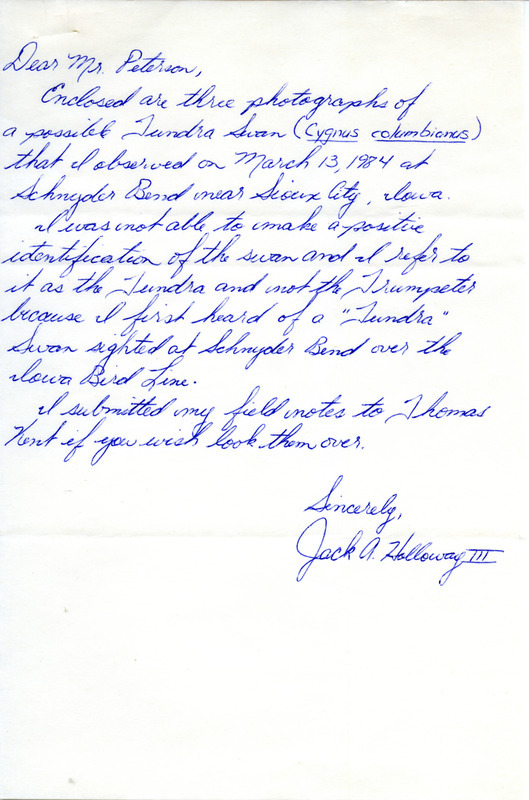 Dear Mr. Peterson,
Enclosed are three photographs of
a possible Tundra Swan (Cygnus columbianus)
that I observed on March 13, 1984 at
Schnyder Bend near Sioux City, Iowa.
I was not able to make a positive
identification of the swan and I refer to
it as the Tundra and not the Trumpeter
because I first heard of a "Tundra"
Swan sighted at Schnyder Bend over the
Iowa Bird Line.
I submitted my field notes to Thomas
Kent if you wish look them over.
Sincerely,
Jack A. Holloway III